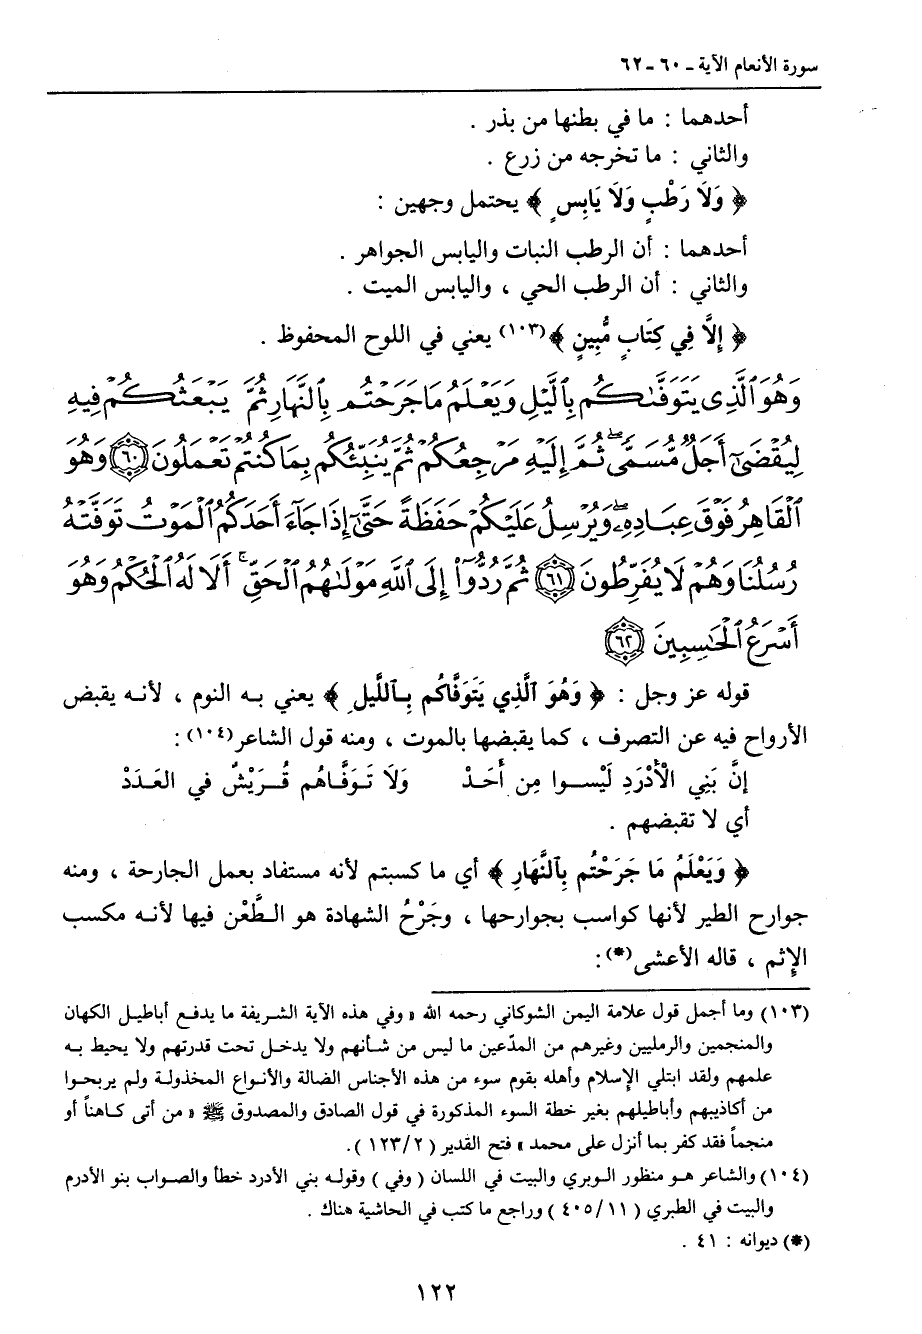 سورة الأنعام الآية ـ ٦٠ ـ ٦٢
أحدهما : ما في بطنها من بذر .
والثاني : ما تخرجه من زرع .
﴿ وَلَا رَطْبٍ وَلَا يَابِسٍ ﴾ يحتمل وجهين :
أحدهما : أن الرطب النبات واليابس الجواهر .
والثاني : أن الرطب الحي ، واليابس الميت .
﴿ إِلَّا فِي كِتَابٍ مُّبِينٍ ﴾(١٠٣) يعني في اللوح المحفوظ .
وَهُوَ ٱلَّذِى يَتَوَفَّىٰكُم بِٱلَّيْلِ وَيَعْلَمُ مَا جَرَحْتُم بِٱلنَّهَارِ ثُمَّ يَبْعَثُكُمْ فِيهِ
لِيُقْضَىٰٓ أَجَلٌ مُّسَمًّى ۖ ثُمَّ إِلَيْهِ مَرْجِعُكُمْ ثُمَّ يُنَبِّئُكُم بِمَا كُنتُمْ تَعْمَلُونَ ٦٠ وَهُوَ
ٱلْقَاهِرُ فَوْقَ عِبَادِهِۦ ۖ وَيُرْسِلُ عَلَيْكُمْ حَفَظَةً حَتَّىٰٓ إِذَا جَآءَ أَحَدَكُمُ ٱلْمَوْتُ تَوَفَّتْهُ
رُسُلُنَا وَهُمْ لَا يُفَرِّطُونَ ٦١ ثُمَّ رُدُّوٓا۟ إِلَى ٱللَّهِ مَوْلَىٰهُمُ ٱلْحَقِّ ۚ أَلَا لَهُ ٱلْحُكْمُ وَهُوَ
أَسْرَعُ ٱلْحَٰسِبِينَ ٦٢
قوله عز وجل : ﴿ وَهُوَ ٱلَّذِي يَتَوَفَّاكُم بِٱللَّيلِ ﴾ يعني به النوم ، لأنه يقبض
الأرواح فيه عن التصرف ، كما يقبضها بالموت ، ومنه قول الشاعر(١٠٤) :
إنَّ بَنِي الْأَدْرَدِ لَيْسوا مِن أَحَدْ وَلَا تَوَفَّاهُم قُرَيْشٌ في العَدَدْ
أي لا تقبضهم .
﴿ وَيَعْلَمُ مَا جَرَحْتُم بِٱلنَّهَارِ ﴾ أي ما كسبتم لأنه مستفاد بعمل الجارحة ، ومنه
جوارح الطير لأنها كواسب بجوارحها ، وجَرْحُ الشهادة هو الطَّعْن فيها لأنه مكسب
الإثم ، قاله الأعشى(*) :
(١٠٣) وما أجمل قول علامة اليمن الشوكاني رحمه الله « وفي هذه الآية الشريفة ما يدفع أباطيل الكهان
والمنجمين والرمليين وغيرهم من المدّعين ما ليس من شأنهم ولا يدخل تحت قدرتهم ولا يحيط به
علمهم ولقد ابتلي الإسلام وأهله بقوم سوء من هذه الأجناس الضالة والأنواع المخذولة ولم يربحوا
من أكاذيبهم وأباطيلهم بغير خطة السوء المذكورة في قول الصادق والمصدوق ﷺ « من أتى كاهناً أو
منجماً فقد كفر بما أنزل على محمد » فتح القدير ( ١٢٣/٢ ) .
(١٠٤) والشاعر هو منظور الوبري والبيت في اللسان ( وفي ) وقوله بني الأدرد خطأ والصواب بنو الأدرم
والبيت في الطبري ( ٤٠٥/١١ ) وراجع ما كتب في الحاشية هناك .
(*) ديوانه : ٤١ .
١٢٢